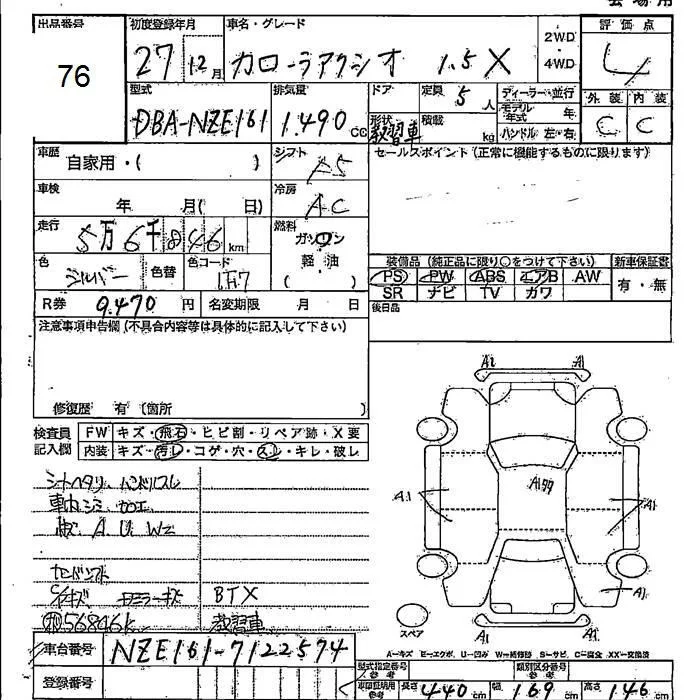 出品番号 初度登録年月 車名・グレード 評価点
76 27 12月 カローラアクシオ 1.5X 2WD・4WD 4
型式 排気量 ドア 定員 ディーラー・並行 外装 内装
DBA-NZE161 1.490cc 形状 教習車 5人 積載 kg モデル年式 年 ハンドル 左・右 C C
車歴 自家用・( ) シフト A5 セールスポイント(正常に機能するものに限ります)
車検 年 月( 日) 冷房 AC
走行 5万6千846km 燃料 ガソリン
色 シルバー 色替 色コード 1F7 軽・油 ( )
装備品(純正品に限り○をつけて下さい) 新車保証書
PS PW ABS エアB AW 有・無
SR ナビ TV カワ
R券 9.470円 名変期限 月 日 後日品
注意事項申告欄(不具合内容等は具体的に記入して下さい)
修復歴 有 (箇所 )
検査員 FW キズ・飛石・ヒビ割・リペア跡・X要
記入欄 内装 キズ・汚レ・コゲ・穴・スレ・キレ・破レ
シートヘタリ ハンドルスレ
車内シミ
A U W2
BTX
56846k 教習車
A1 A1
A1 A1
A1
A1 A1
スペア
A=キズ E=エクボ U=凹み W=補修跡 S=サビ C=腐食 XX=交換済
車台番号 NZE161-7122574
登録番号
型式指定番号 類別区分番号
長さ 440cm 幅 169cm 高さ 146cm